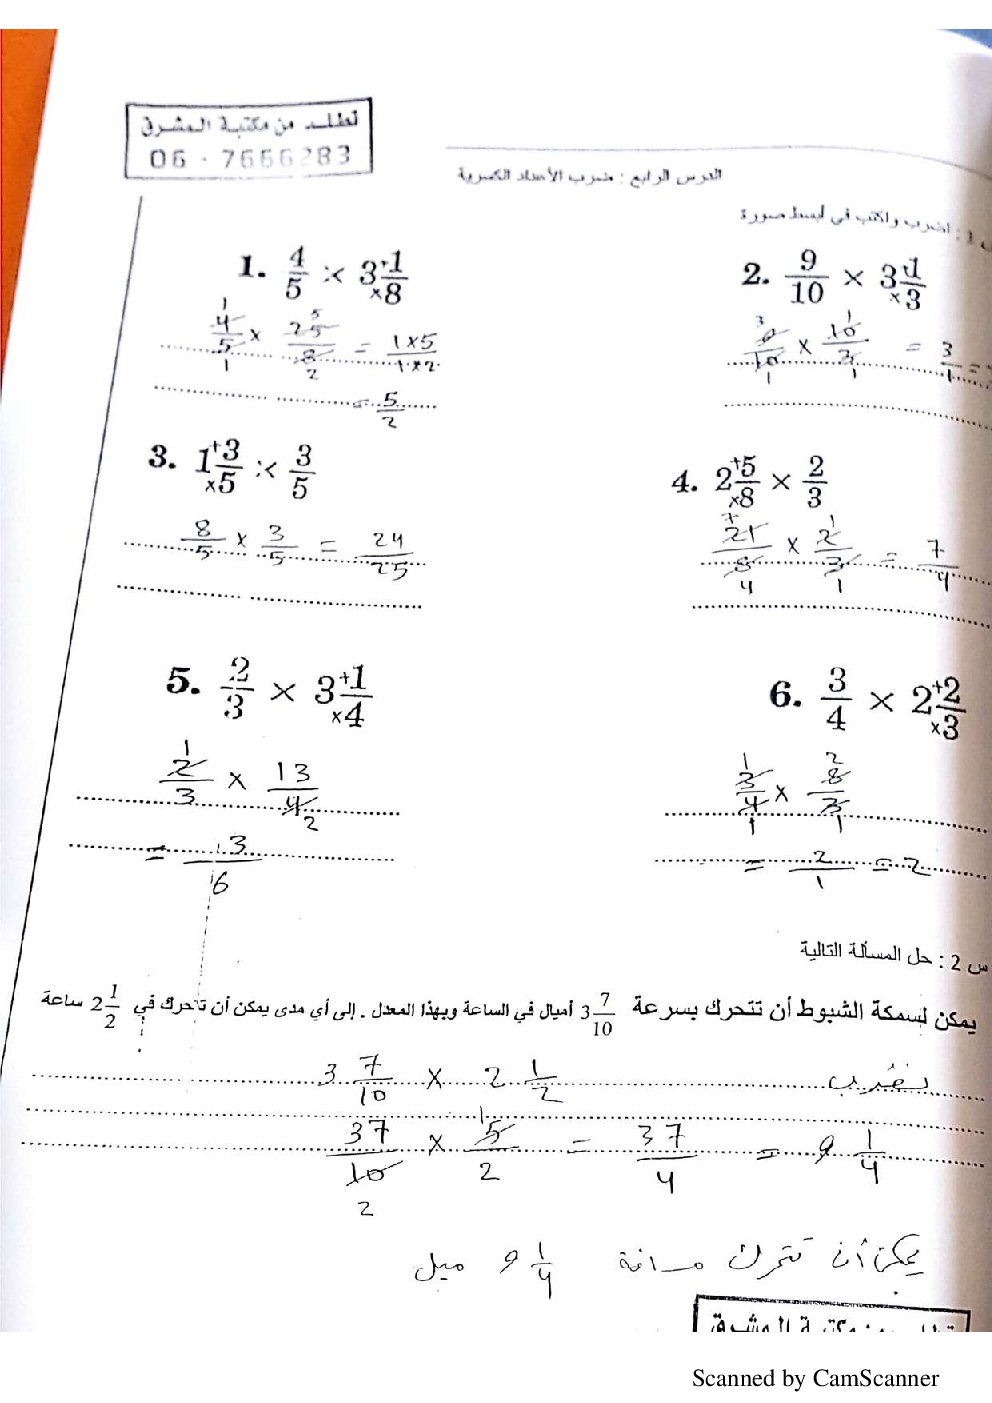 تطلب من مكتبة المشرق
06 - 7666283
الدرس الرابع : ضرب الأعداد الكسرية
س 1 : اضرب واكتب في أبسط صورة
1. 4/5 × 3 1/8
2. 9/10 × 3 1/3
4/5 × 25/8 = 1×5/1×2
9/10 × 10/3 = 3/1 =
= 5/2
3. 1 3/5 × 3/5
4. 2 5/8 × 2/3
8/5 × 3/5 = 24/25
21/8 × 2/3 = 7/4
5. 2/3 × 3 1/4
6. 3/4 × 2 2/3
2/3 × 13/4
3/4 × 8/3
= 13/6
= 2/1 = 2
س 2 : حل المسألة التالية
يمكن لسمكة الشبوط أن تتحرك بسرعة 3 7/10 أميال في الساعة وبهذا المعدل . إلى أي مدى يمكن أن تتحرك في 2 1/2 ساعة
نضرب 3 7/10 × 2 1/2
37/10 × 5/2 = 37/4 = 9 1/4
يمكن أن تتحرك مسافة 9 1/4 ميل
تطلب من مكتبة المشرق
Scanned by CamScanner